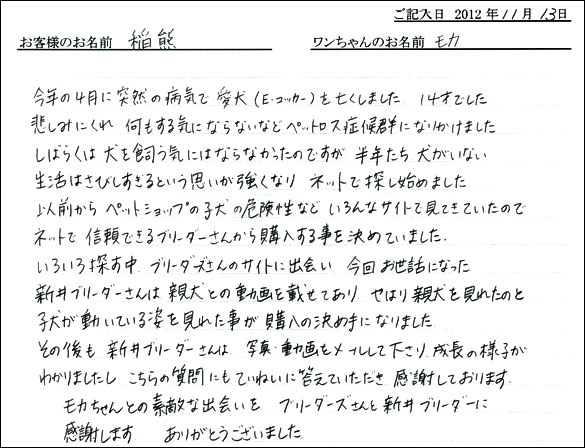 ご記入日 2012年11月13日
お客様のお名前 稲熊 ワンちゃんのお名前 モカ
今年の4月に突然の病気で愛犬(E・コッカー)を亡くしました 14才でした
悲しみにくれ 何もする気にならないなどペットロス症候群になりかけました
しばらくは犬を飼う気にはならなかったのですが 半年たち 犬がいない
生活はさびしすぎるという思いが強くなり ネットで探し始めました
以前から ペットショップの子犬の危険性など いろんなサイトで見てきていたので
ネットで信頼できるブリーダーさんから購入する事を決めていました.
いろいろ探す中 ブリーダズさんのサイトに出会い 今回お世話になった
新井ブリーダーさんは親犬との動画を載せてあり やはり親犬を見れたのと
子犬が動いている姿を見れた事が購入の決め手になりました
その後も 新井ブリーダーさんは 写真・動画をメールして下さり 成長の様子が
わかりましたし こちらの質問にもていねいに答えていただき 感謝しております.
モカちゃんとの素敵な出会いを ブリーダーズさんと新井ブリーダーに
感謝します ありがとうございました